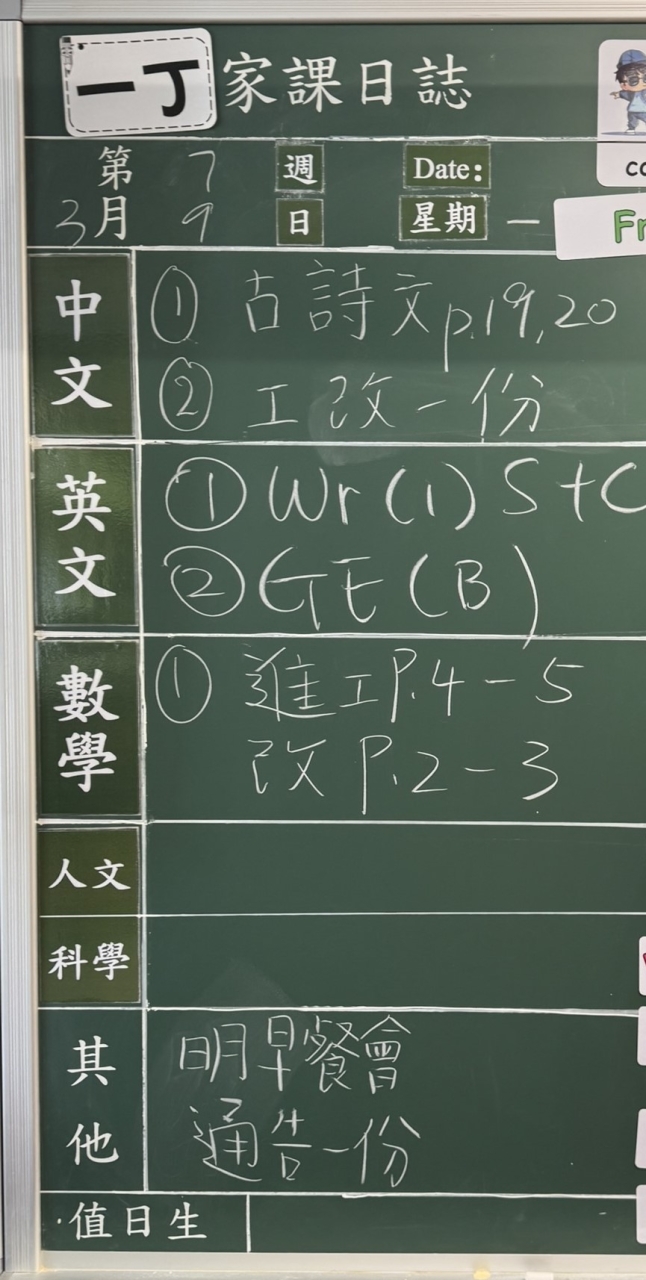 一丁 家課日誌
第 7 週 Date:
3月 9 日 星期 一
Fr
中文 ① 古詩文p.19,20
② 工改一份
英文 ① Wr(1) S+C
② GE(B)
數學 ① 進工P.4-5
改 P.2-3
人文
科學
其他 明早餐會
通告一份
·值日生